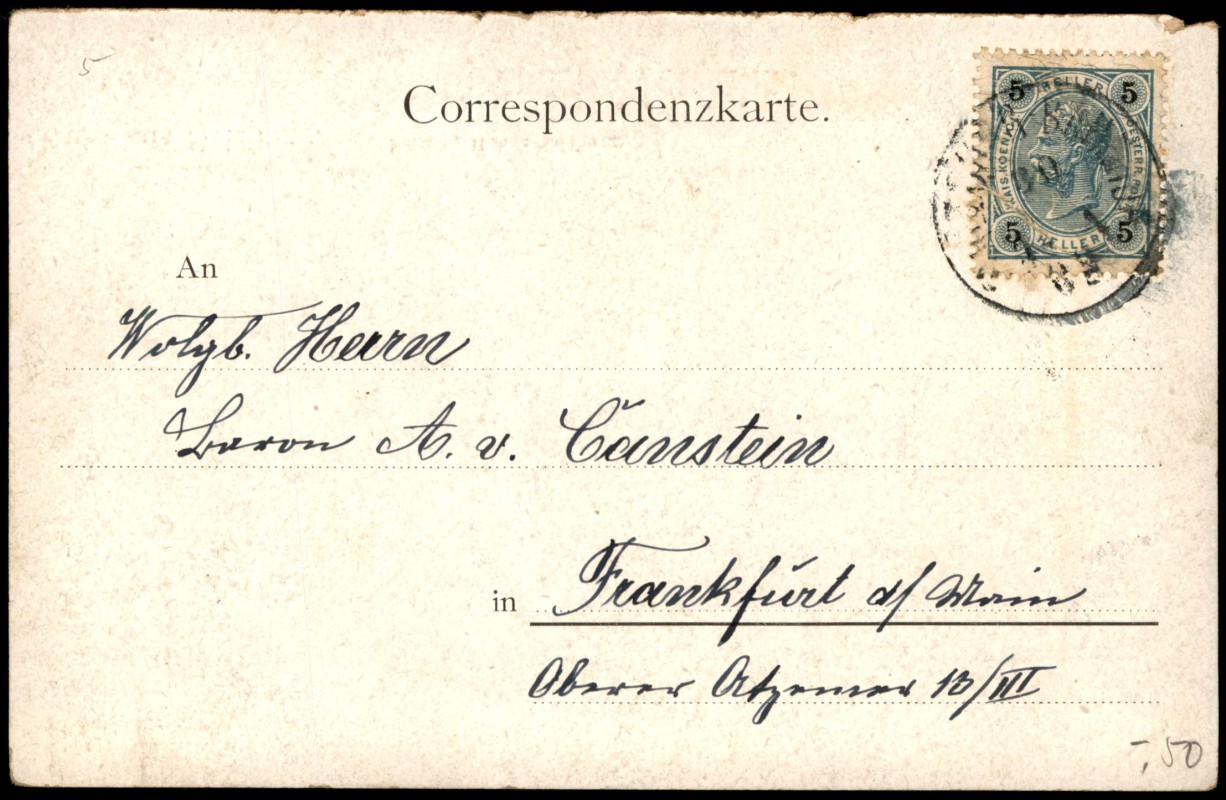 5
Correspondenzkarte.
5 HELLER 5
KAIS. KOENIGL. OESTERR. POST
5 HELLER 5
An
Wolgb. Herrn
Baron A. v. Canstein
in Frankfurt a/ Main
Oberer Atzemer 13/III
-,50